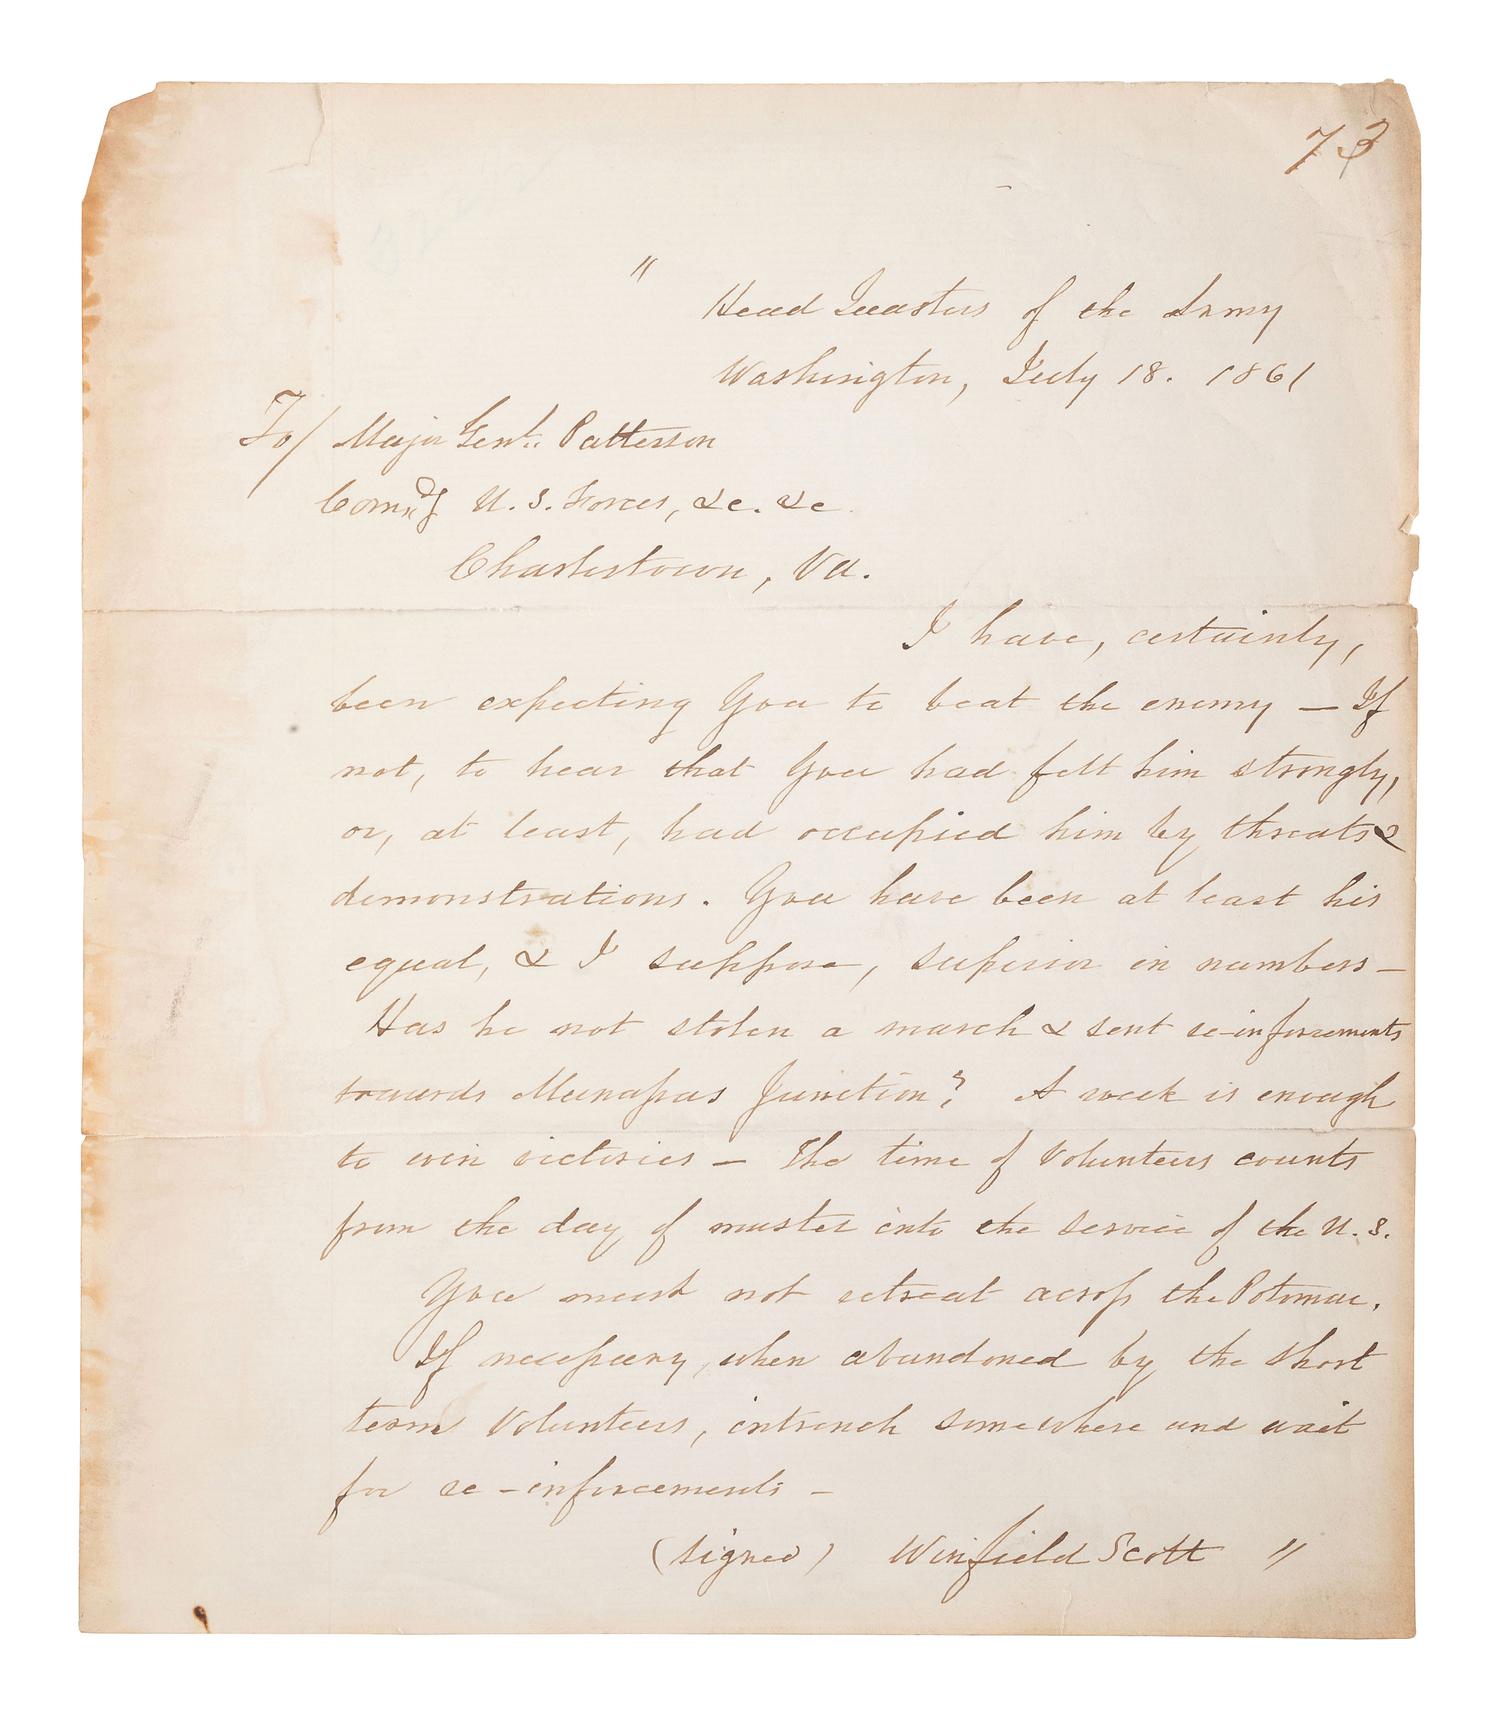 73
"
Head Quarters of the Army
Washington, July 18. 1861
To/ Major Genl. Patterson
Comdg U. S. Forces, &c. &c
Charlestown, Va.
I have, certainly,
been expecting You to beat the enemy — If
not, to hear that You had felt him strongly,
or, at least, had occupied him by threats &
demonstrations. You have been at least his
equal, & I suppose, superior in numbers —
Has he not stolen a march & sent re-inforcements
towards Manassas Junction? A week is enough
to win victories — The time of Volunteers counts
from the day of muster into the service of the U. S.
You must not retreat across the Potomac.
If necessary, when abandoned by the short
term Volunteers, intrench somewhere and wait
for re-inforcements —
(signed) Winfield Scott "